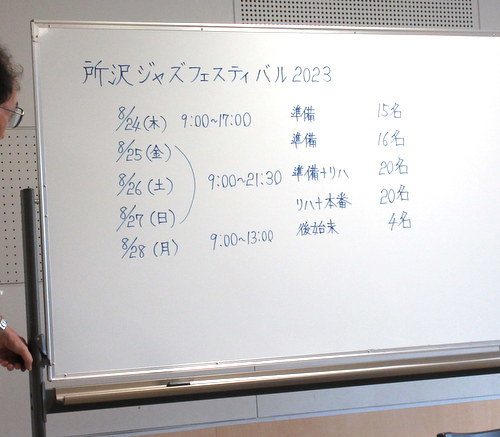 所沢ジャズフェスティバル2023
8/24(木) 9:00~17:00 準備 15名
8/25(金) 準備 16名
8/26(土) 9:00~21:30 準備+リハ 20名
8/27(日) リハ+本番 20名
8/28(月) 9:00~13:00 後始末 4名